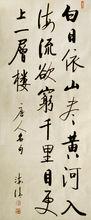 白日依山尽黄河入
海流欲窮千里目更
上一層樓 唐人名句